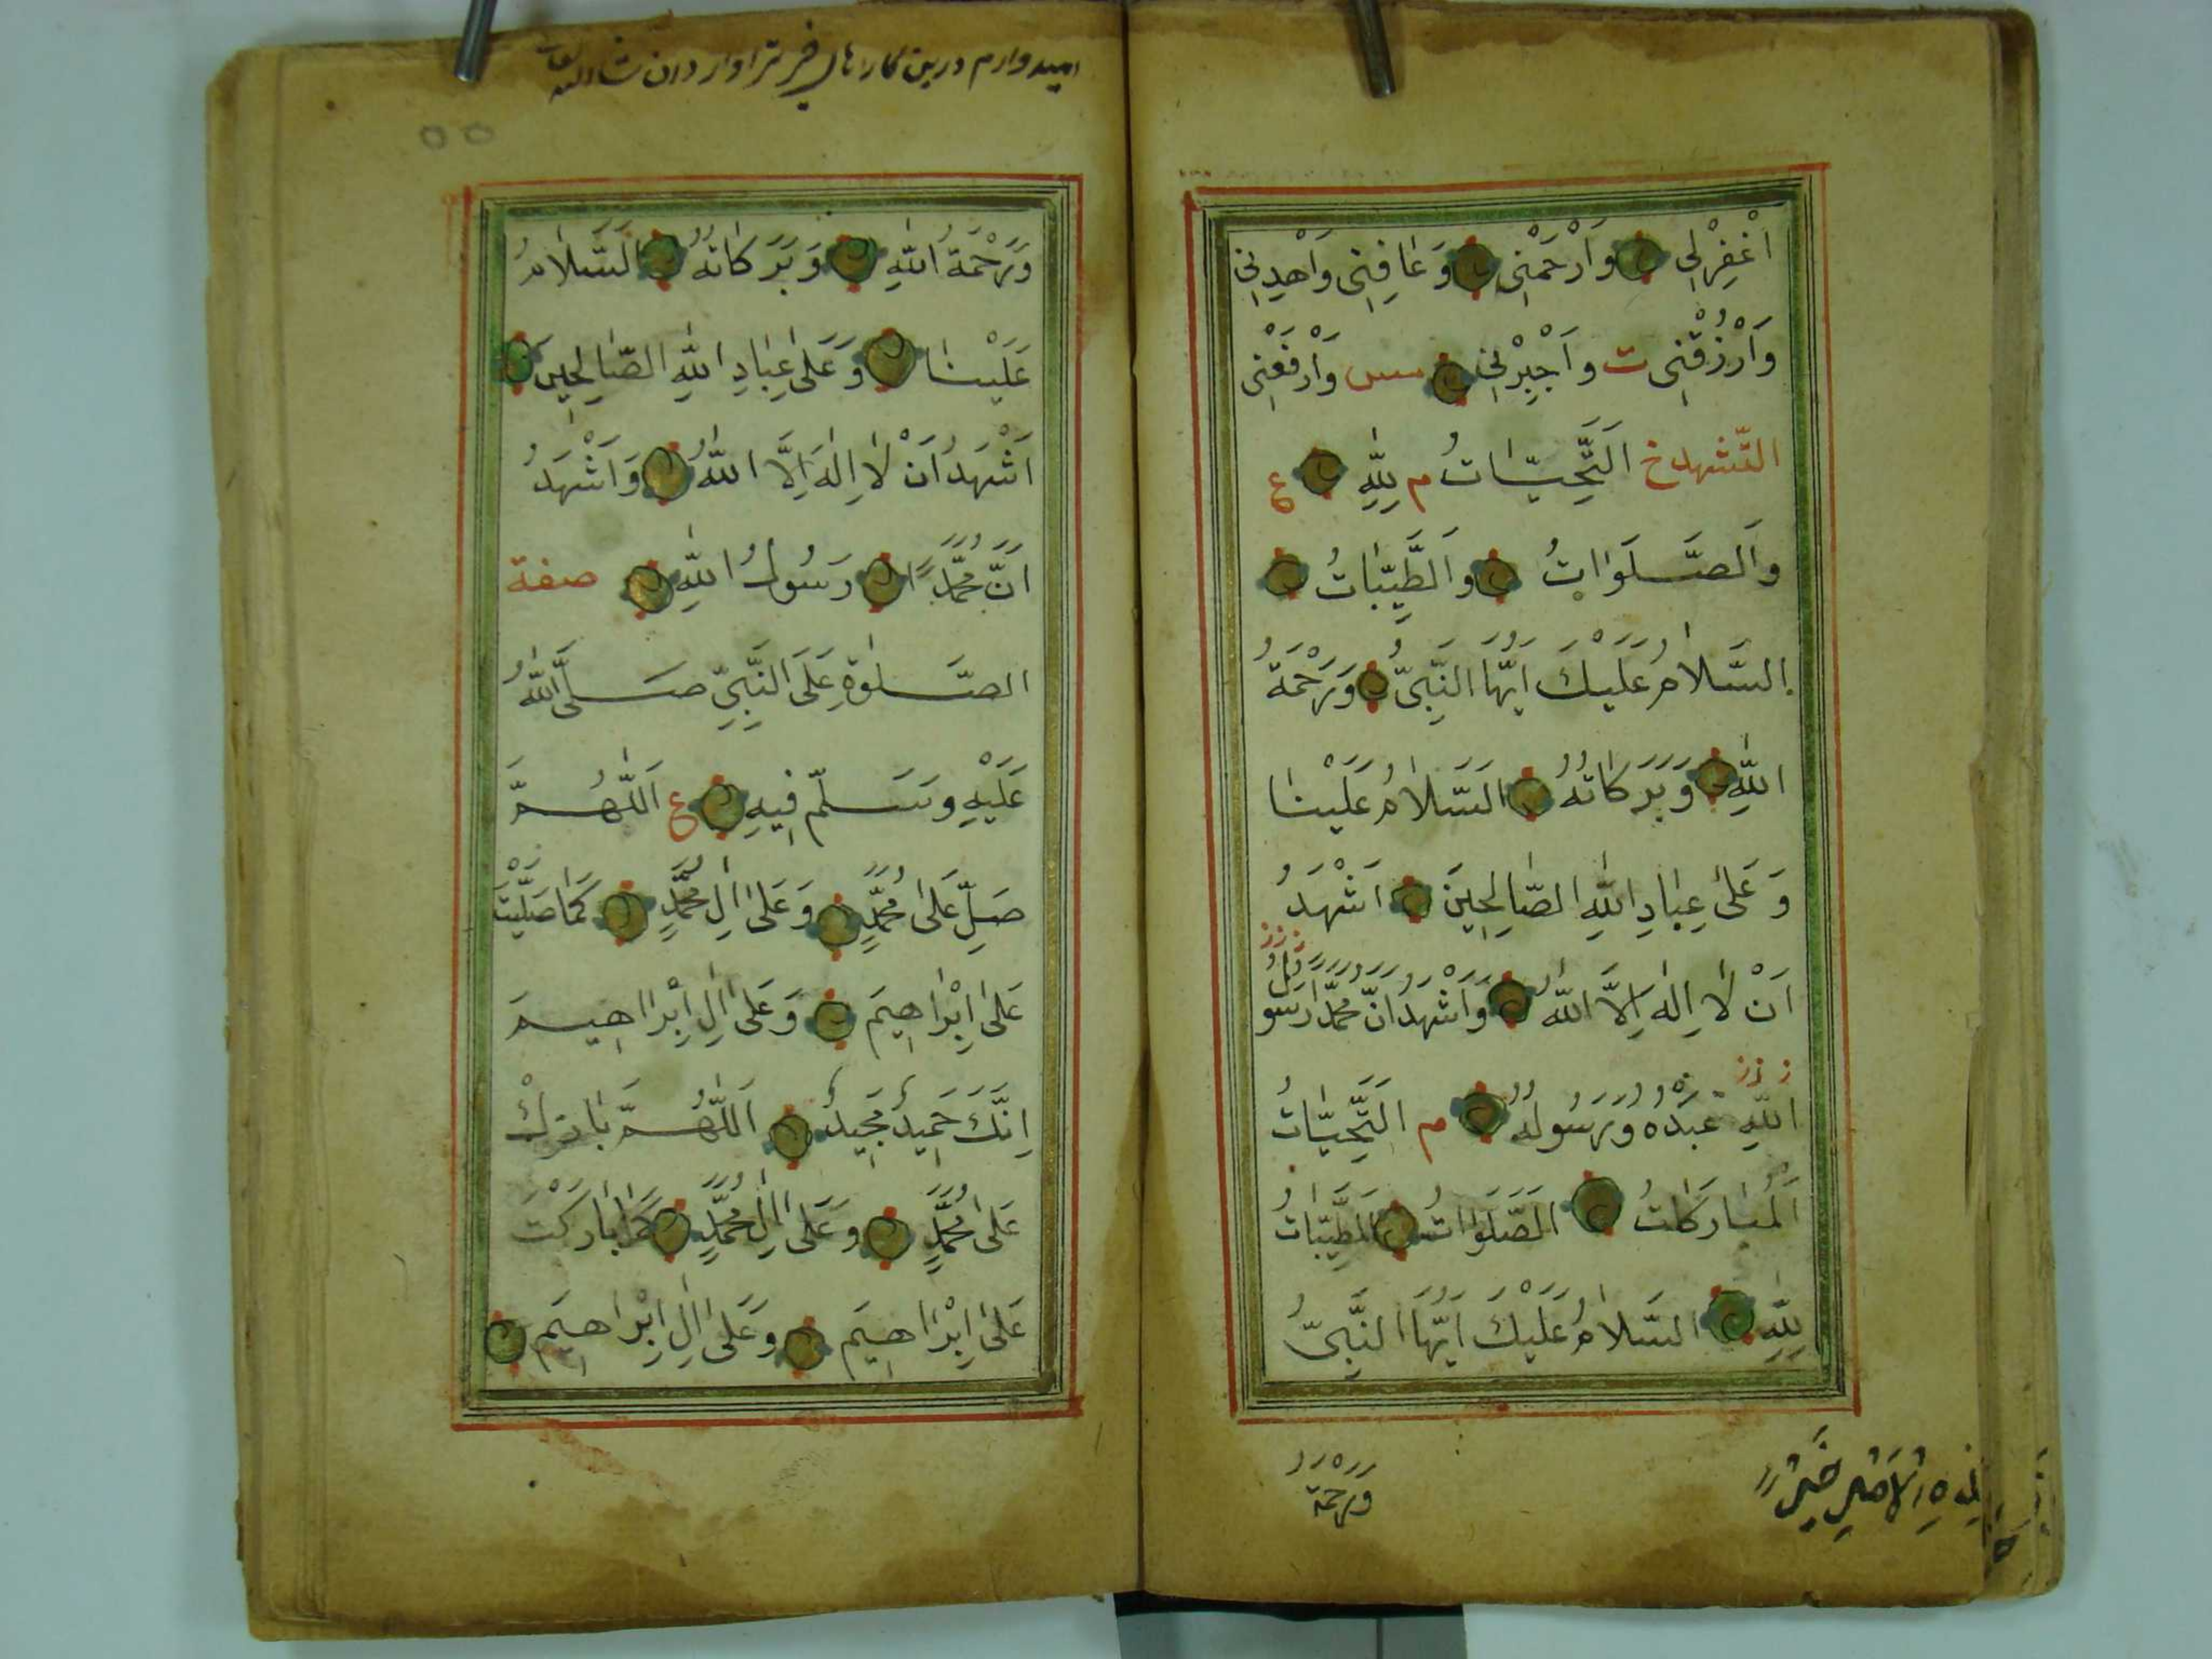 اَغْفِرْلِي وَارْحَمْنِي وَعَافِنِي وَاهْدِنِي
وَارْزُقْنِي ت وَاجْبُرْنِي مس وَارْفَعْنِي
التّشهد خ اَلتَّحِيَّاتُ م لِلّٰهِ ع
وَالصَّلَوَاتُ وَالطَّيِّبَاتُ
السَّلَامُ عَلَيْكَ اَيُّهَا النَّبِيُّ وَرَحْمَةُ
اللّٰهِ وَبَرَكَاتُهُ اَلسَّلَامُ عَلَيْنَا
وَعَلَى عِبَادِ اللّٰهِ الصَّالِحِينَ اَشْهَدُ
اَنْ لَا اِلٰهَ اِلَّا اللّٰهُ وَاَشْهَدُ اَنَّ مُحَمَّدًا رَسُولُ
ز ز ز
اللّٰهِ عَبْدُهُ وَرَسُولُهُ م اَلتَّحِيَّاتُ
اَلْمُبَارَكَاتُ اَلصَّلَوَاتُ اَلطَّيِّبَاتُ
لِلّٰهِ السَّلَامُ عَلَيْكَ اَيُّهَا النَّبِيُّ
وَرَحْمَةُ
الْاَمْرِ خَيْرًا
اميدوارم درين
وَرَحْمَةُ اللّٰهِ وَبَرَكَاتُهُ اَلسَّلَامُ
عَلَيْنَا وَعَلَى عِبَادِ اللّٰهِ الصَّالِحِينَ
اَشْهَدُ اَنْ لَا اِلٰهَ اِلَّا اللّٰهُ وَاَشْهَدُ
اَنَّ مُحَمَّدًا رَسُولُ اللّٰهِ صفة
الصَّلٰوةِ عَلَى النَّبِيِّ صَلَّى اللّٰهُ
عَلَيْهِ وَسَلَّمَ فِيهِ ع اَللّٰهُمَّ
صَلِّ عَلَى مُحَمَّدٍ وَعَلَى اٰلِ مُحَمَّدٍ كَمَا صَلَّيْتَ
عَلَى اِبْرَاهِيمَ وَعَلَى اٰلِ اِبْرَاهِيمَ
اِنَّكَ حَمِيدٌ مَجِيدٌ اَللّٰهُمَّ بَارِكْ
عَلَى مُحَمَّدٍ وَعَلَى اٰلِ مُحَمَّدٍ كَمَا بَارَكْتَ
عَلَى اِبْرَاهِيمَ وَعَلَى اٰلِ اِبْرَاهِيمَ